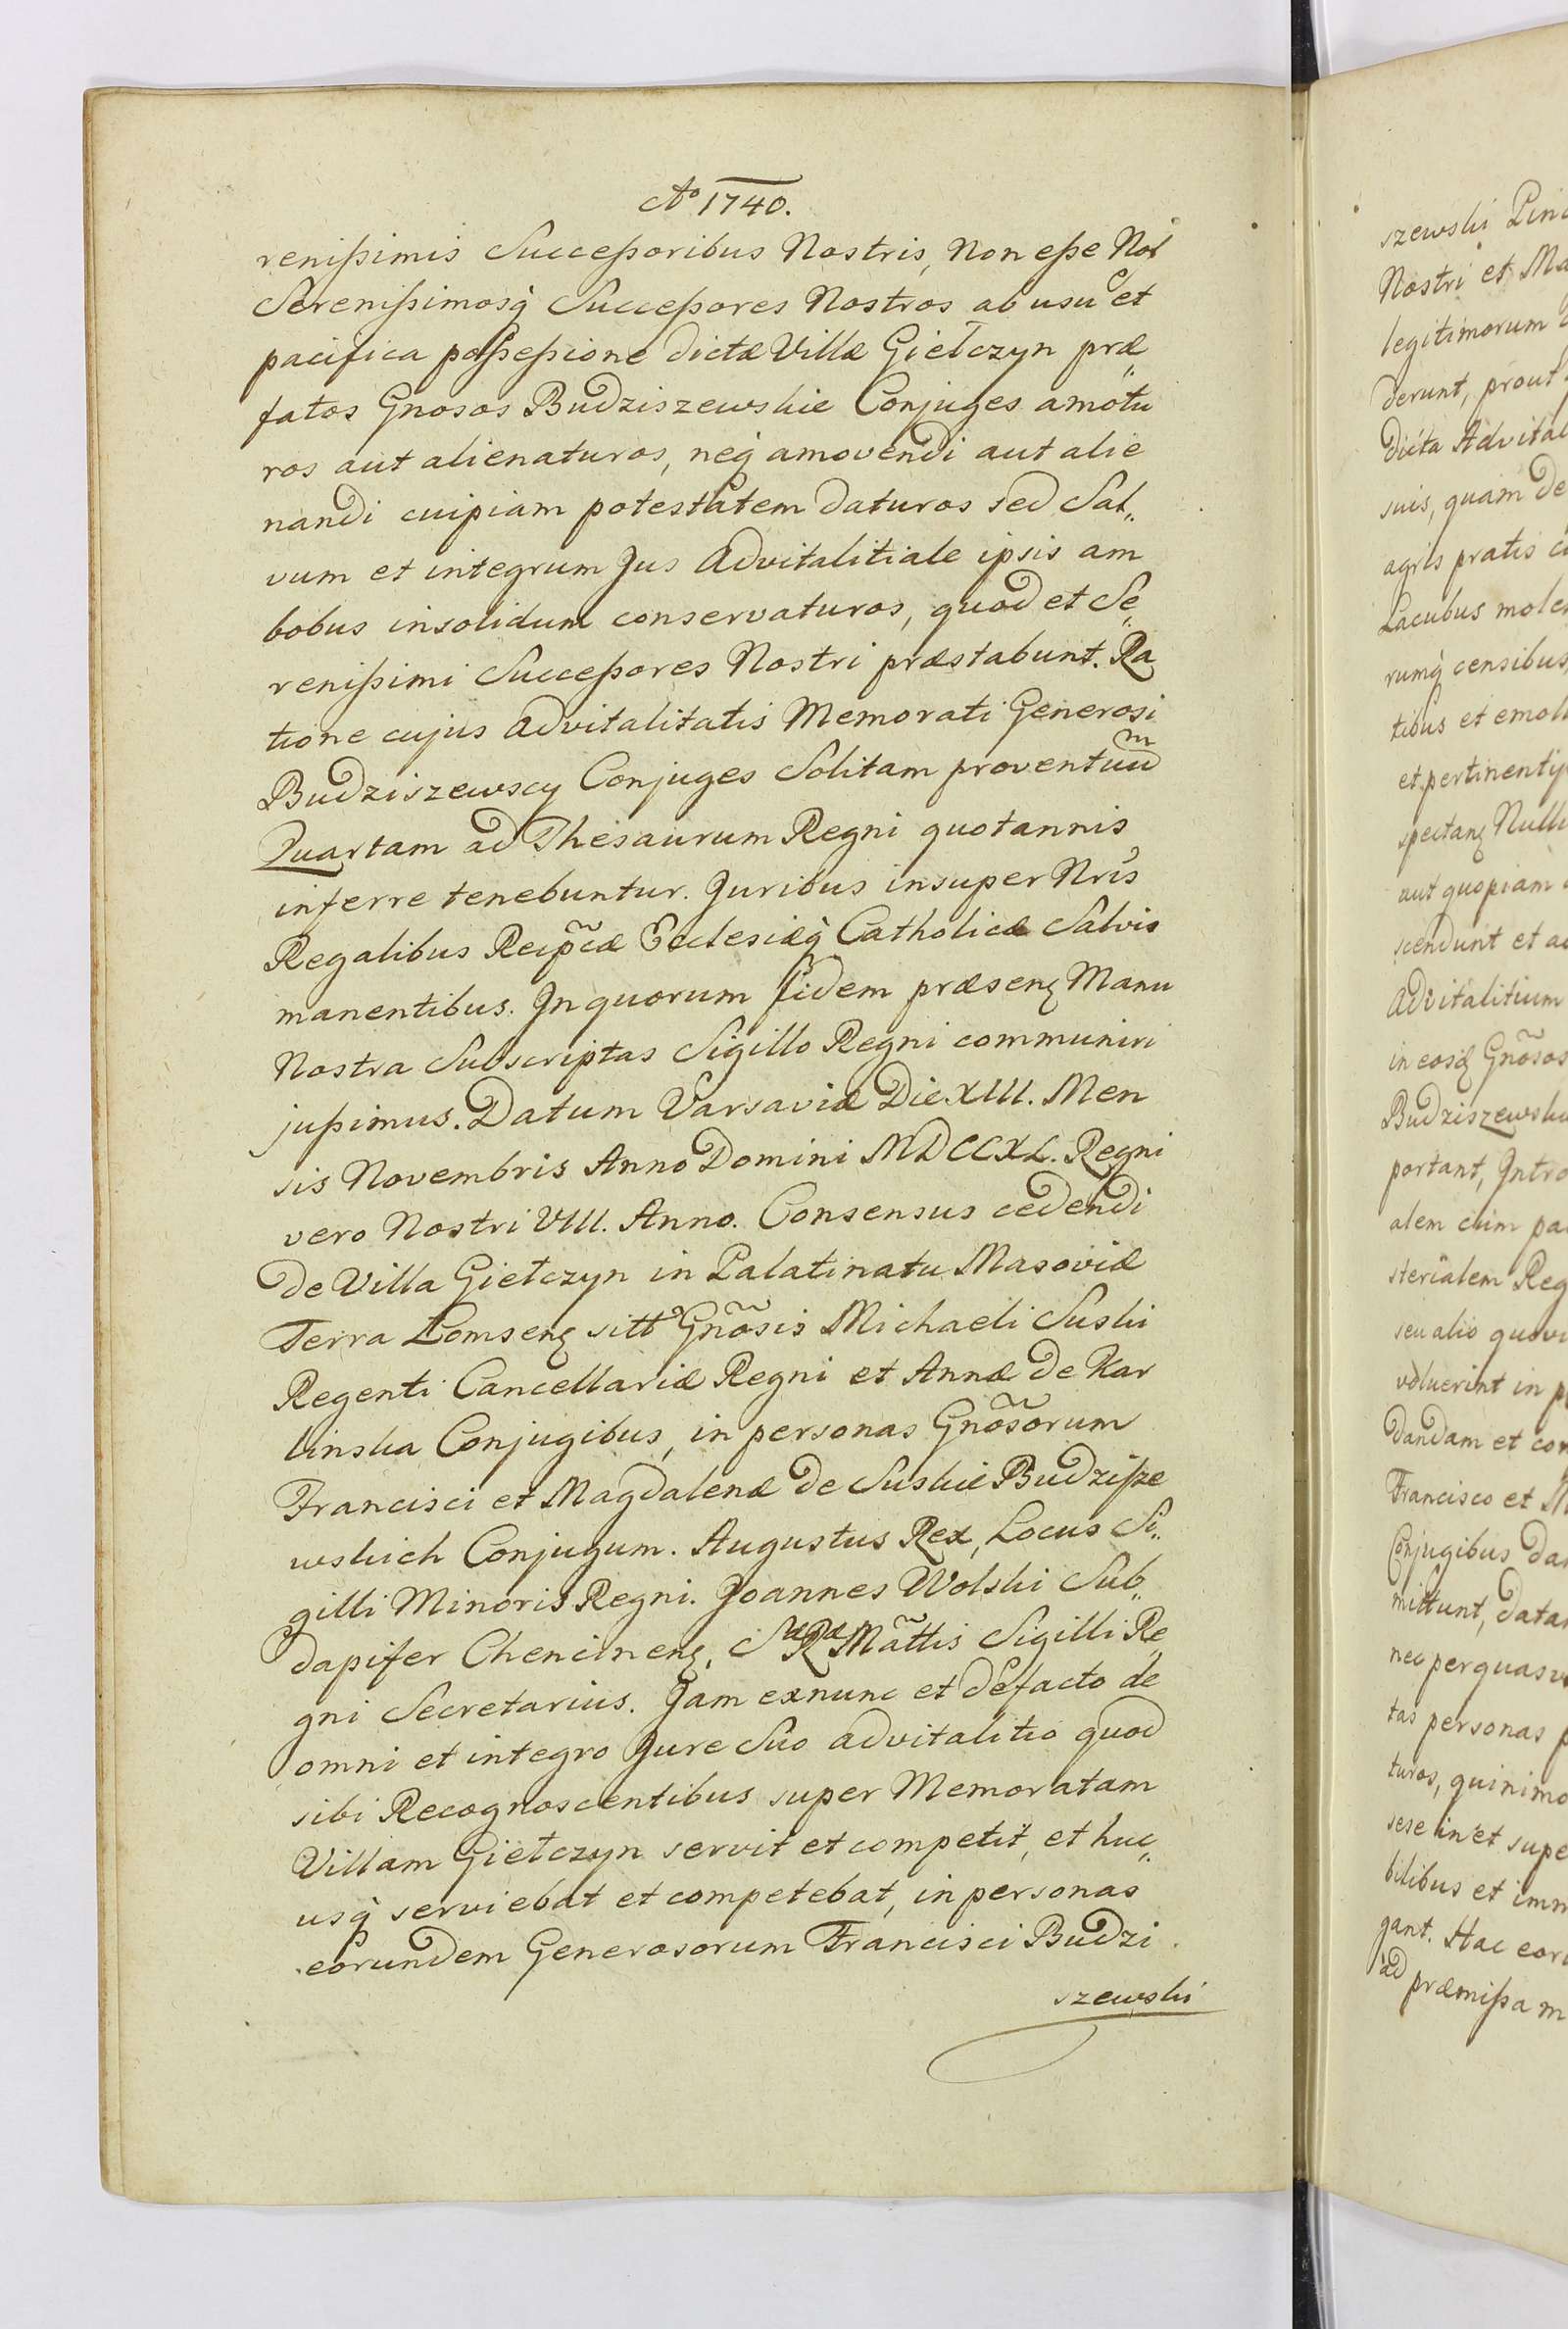 Aº 1740.
renißimis Succeßoribus Nostris, Non eße Nos
Serenißimosq̀ Succeßores Nostros ab usu et
pacifica poßeßione dictæ Villæ Giełczyn præ„
fatos Gnosos Budziszewskie Conjuges amotu
ros aut alienaturos, neq̀ amovendi aut alie
nandi cuipiam potestatem daturos sed Sal„
vum et integrum Jus Advitalitiale ipsis am
bobus insolidum conservaturos, quod et Se„
renißimi Succeßores Nostri præstabunt. Ra
tione cujus Advitalitatis Memorati Generosi
Budziszewscy Conjuges Solitam proventuum
Quartam ad Thesaurum Regni quotannis
inferre tenebuntur. Juribus insuper Nris
Regalibus Reip̃cæ Ecclesiæq̀ Catholicæ Salvis
manentibus. In quorum fidem præsenꝫ Manu
Nostra Subscriptas Sigillo Regni communiri
jußimus. Datum Varsaviæ Die XIII. Men
sis Novembris Anno Domini MDCCXL. Regni
vero Nostri VIII. Anno. Consensus cedendi
De Villa Giełczyn in Palatinatu Masoviæ
Terra Lomsenꝫ sitt̃ Gnõsis Michaeli Suski
Regenti Cancellariæ Regni et Annæ de Kar
linska Conjugibus, in personas Gnõsorum
Francisci et Magdalenæ de Suskie Budziße
wskich Conjugum. Augustus Rex, Locus Si„
gilli Minoris Regni. Joannes Wolski Sub„
dapifer Chencinenꝫ, Sæ Ræ Mãttis Sigilli Re
gni Secretarius. Jam exnunc et defacto de
omni et integro Jure Suo advitalitio quod
sibi Recognoscentibus super Memoratam
Villam Giełczyn servit et competit, et huc„
usq̀ serviebat et competebat, in personas
eorundem Generosorum Francisci Budzi
szewski
szewski
Nostri et Ma
legitimorum
derunt, prout
dicta Advital
suis, quam de
agris pratis
Lacubus mole
rumq̀ censibus
tibus et emol
et pertinentij
spectanꝫ Nulli
aut quopiam
scendunt et a
Advitalitium
in eosꝗ Gnõsos
Budziszewski
portant, Intro
alem cum pa
sterialem Reg
seu alio quovi
voluerint in p
dandam et con
Francisco et M
Conjugibus da
mittunt, data
nec per quasv
tas personas p
turos, quinimo
sese in et supe
bilibus et imm
gant. Hac eor
ad præmißa m